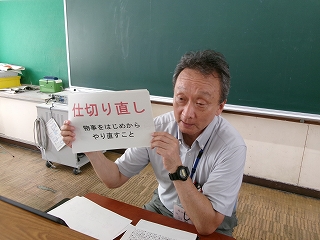 仕切り直し
物事をはじめから
やり直すこと